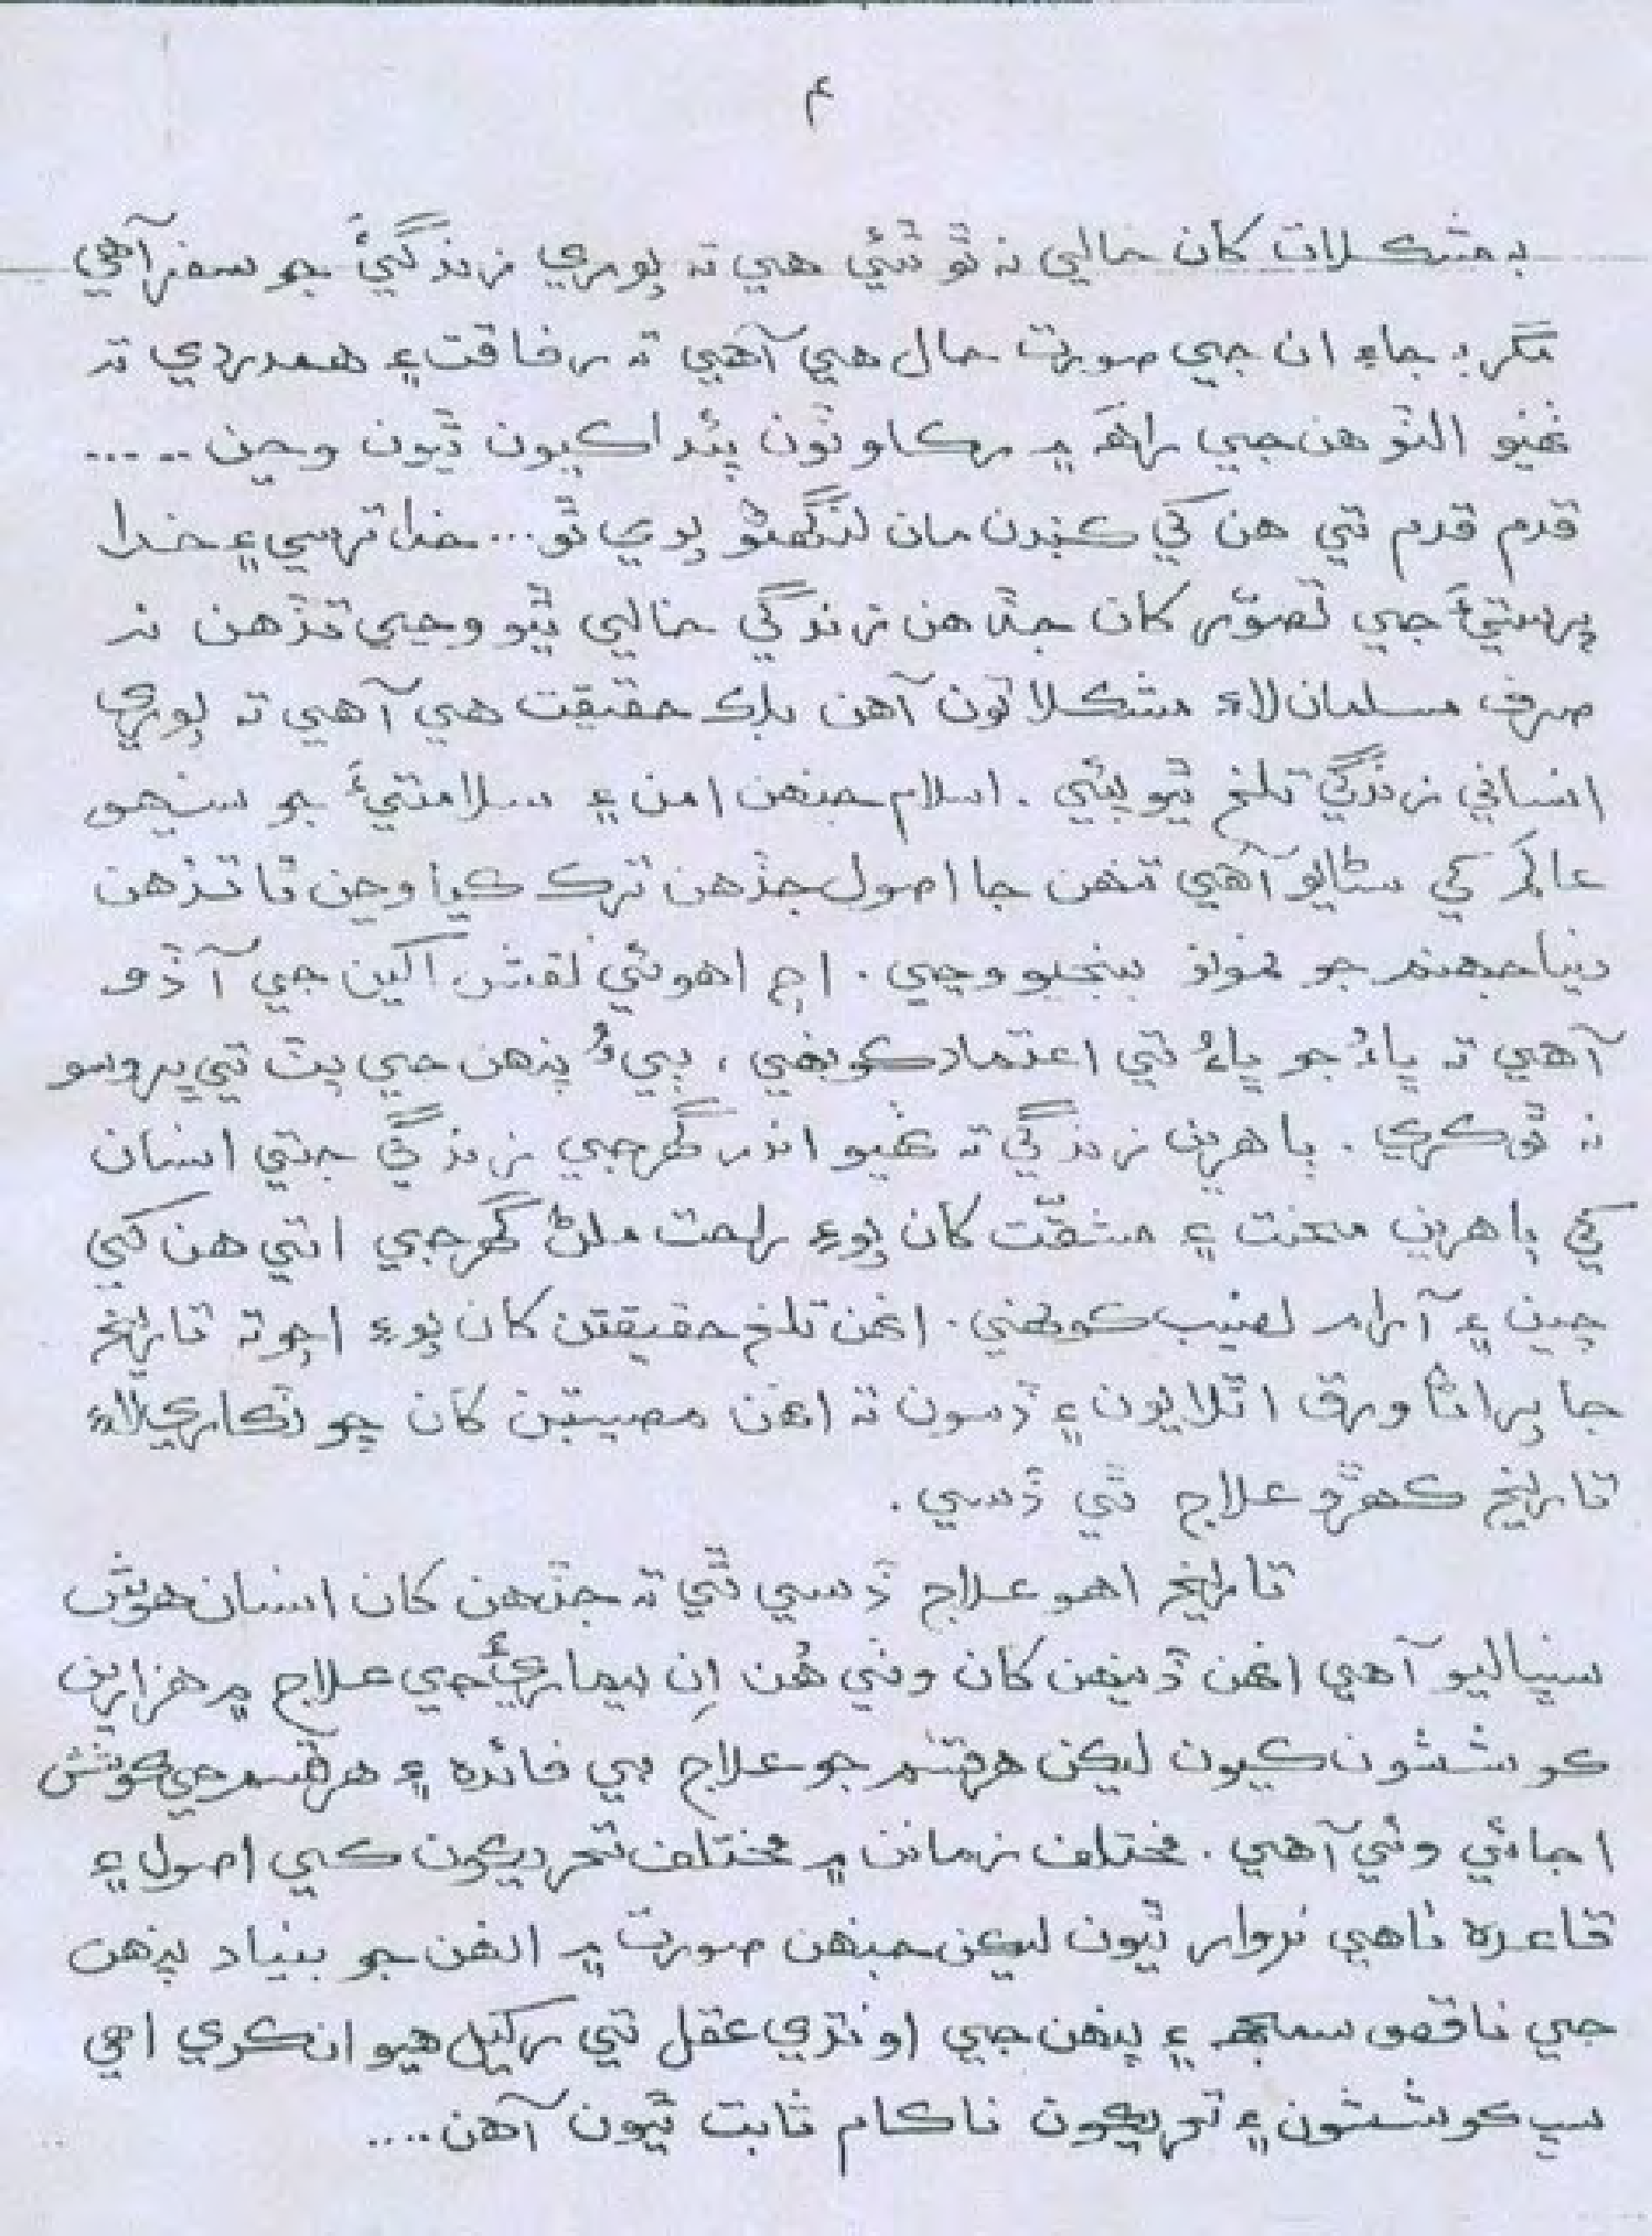 ۴
به مشڪلات کان خالي نه ٿو ٿئي هي ته پوري زندگيءَ جو سفر آهي
مگر بجاءِ ان جي صورت حال هي آهي ته رفاقت ۽ همدردي ته
ٺهيو الٽو هن جي راهه ۾ رڪاوٽون پئدا ڪيون ٿيون وڃن .....
قدم قدم تي هن کي ڪنڊن مان لنگهڻو پوي ٿو... خدا ترسي ۽ خدا
پرستيءَ جي تصوّر کان جڏهن زندگي خالي ٿيو وڃي تڏهن نه
صرف مسلمان لاءِ مشڪلاتون آهن بلڪ حقيقت هي آهي ته پوري
انساني زندگي تلخ ٿيو پئي . اسلام جنهن امن ۽ سلامتيءَ جو سنيهو
عالم کي سڻايو آهي تنهن جا اصول جڏهن ترڪ ڪيا وڃن ٿا تڏهن
دنيا جهنم جو نمونو بنجيو وڃي . اڄ اهوئي نقش اکين جي آڏو
آهي ته ڀاءُ جو ڀاءُ تي اعتماد ڪونهي ، پيءُ پنهن جي پٽ تي ڀروسو
نه ٿو ڪري . ٻاهرين زندگي ته ٺهيو اندر گهر جي زندگي جتي انسان
کي ٻاهرين محنت ۽ مشقّت کان پوءِ راحت ملڻ گهرجي اتي هن کي
چين ۽ آرام نصيب ڪونهي . انهن تلخ حقيقتن کان پوءِ اچو ته تاريخ
جا پراڻا ورق اٿلايون ۽ ڏسون ته انهن مصيبتن کان ڇوٽڪاري لاءِ
تاريخ ڪهڙو علاج ٿي ڏسي .
تاريخ اهو علاج ڏسي ٿي ته جڏهن کان انسان هوش
سنڀاليو آهي انهن ڏينهن کان وٺي هُن اِن بيماريءَ جي علاج ۾ هزارين
ڪوششون ڪيون ليڪن هر قسم جو علاج بي فائده ۽ هر قسم جي ڪوشش
اجائي وئي آهي . مختلف زمانن ۾ مختلف تحريڪون ڪي اصول ۽
قاعده ٺاهي نروار ٿيون ليڪن جنهن صورت ۾ انهن جو بنياد پنهن
جي ناقص سمجهه ۽ پنهن جي اونڌي عقل تي رکيل هيو ان ڪري اهي
سڀ ڪوششون ۽ تحريڪون ناڪام ثابت ٿيون آهن ....